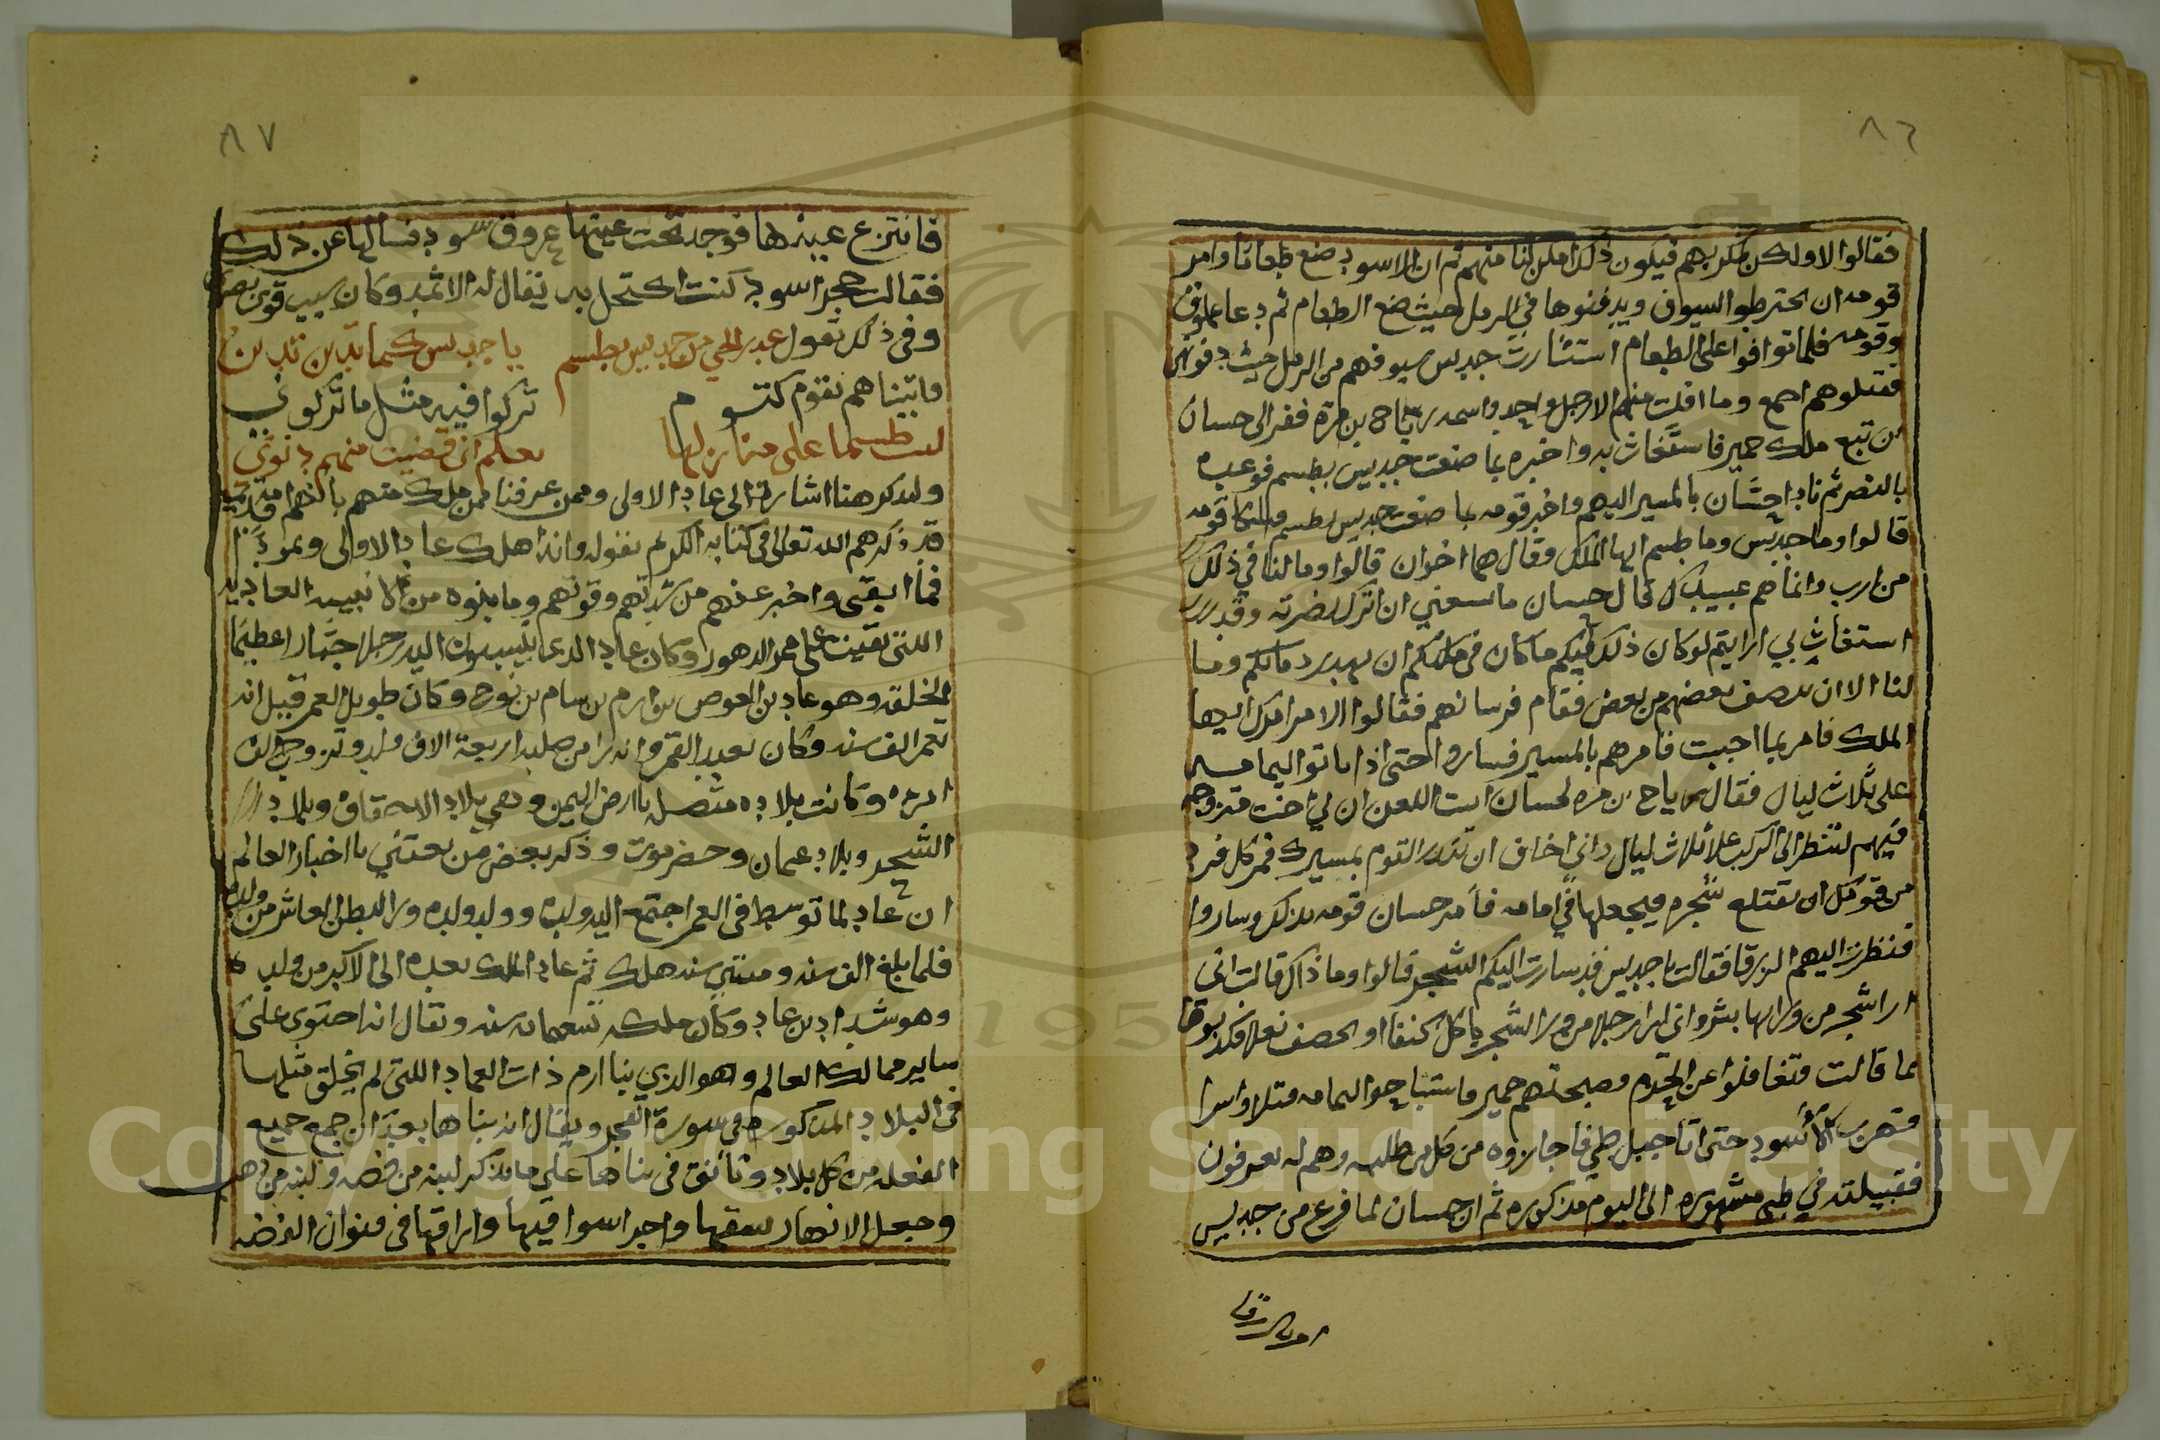 ٨٦
فقالوا لا ولكن نمكر بهم فيكون ذلك امكن لنا منهم ثم ان الاسود صنع طعاما وامر
قومه ان يخترطوا السيوف ويدفنوها في الرمل حيث صنع الطعام ثم دعا عملوق
وقومه فلما توافوا على الطعام استثارت جديس سيوفهم من الرمل حيث دفنوها
فقتلوهم اجمع وما افلت منهم الا رجل واحد واسمه رياح بن مرة ففر الى حسان
بن تبع ملك حمير فاستغاث به واخبره بما صنعت جديس بطسم فوعده
بالنصر ثم نادا حسان بالمسير اليهم واخبر قومه بما صنعت جديس بطسم
قالوا وما جديس وما طسم ايها الملك وقال هما اخوان قالوا وما لنا في ذلك
من ارب وانما هم عبيدك قال حسان ما يسعني ان اترك نصرته وقد
استغاث بي ارايتم لو كان ذلك فيكم ما كان في ملككم ان يهدر دماكم وما
لنا الا ان ننصف بعضهم من بعض فقام فرسانهم فقالوا الامر امرك ايها
الملك فامر بما احببت فامرهم بالمسير فساروا حتى اذا باتوا اليمامه
على ثلاث ليال فقال رياح بن مره لحسان ابيت اللعن ان لي اخت متزوجه
فيهم لتنظر الى الركب على ثلاث ليال واني اخاف ان تنذر القوم بمسيرك فمر كل فرد
من قومك ان يقتلع شجره فيجعلها في امامه فأمر حسان قومه بذلك وساروا
فنظرت اليهم الزرقا فقالت يا جديس قد سارت اليكم الشجر قالوا وما ذاك قالت اني
ارا شجر من ورايها بشر واني لارا رجلا من ورا الشجر ياكل كتفا او يخصف نعلا فكذبوها
بما قالت وتغافلوا عن الحزم وصبحتهم حمير فاستباحوا اليمامه قتلا واسرا
فهرب الأسود حتى اتا جبل طي فاجاروه من كل من طلبه وهم له يعرفون
فقبيلته في طي مشهوره الى اليوم مذكوره ثم ان حسان لما فرغ من جديس
٨٧
فانتزع عينيها فوجد تحت عينها عروق سود فسالها عن ذلك
فقالت حجر اسود كنت اكتحل به يقال له الاثمد وكان سبب قوي بصري
وفي ذلك تقول عبد الحي من جديس بطسم يا جديس كما تدين تدين
واتيناهم بقوم كتوم تركوا فيه مثل ما تركوني
ليت طسما على منازلها تعلم اني قضيت منهم ديوني
ولنذكر هنا اشارة الى عاد الاولى وممن عرفنا ممن ملك منهم
قد ذكرهم الله تعالى في كتابه الكريم بقوله وانه اهلك عاد الاولى وثمودا
فما ابقى واخبر عنهم من شدتهم وقوتهم وما بنوه من الابنيه العاديه
اللتي بقيت على ممر الدهور وكان عاد الذي ينسبون اليه رجلا جبارا عظيما
الخلقه وهو عاد بن العوص بن ارم بن سام بن نوح وكان طويل العمر قيل انه
عمر الف سنه وكان يعبد القمر وانه را من صلبه اربعة الاف ولد وتزوج الف
امراه وكانت بلاده متصله بارض اليمن وهي بلاد الاحقاف وبلاد
الشحر وبلاد عمان وحضرموت وذكر بعض من يعتني باخبار العالم
ان عاد لما توسط في العمر اجتمع اليه ولده وولد ولده ورا البطن العاشر من ولده
فلما بلغ الف سنه ومئتي سنه هلك ثم عاد الملك بعده الى الاكبر من ولده
وهو شداد بن عاد وكان ملكه تسعمائه سنه ويقال انه احتوى على
ساير ممالك العالم وهو الذي بنا ارم ذات العماد اللتي لم يخلق مثلها
في البلاد المذكوره في سورة الفجر ويقال انه بناها بعد ان جمع جميع
الفعله من كل بلاد وتأنق في بناها على ما يذكر لبنه من فضه ولبنه من ذهب
وجعل الانهار سقيها واجرا سواقيها واراقتها في قنوات الفضه